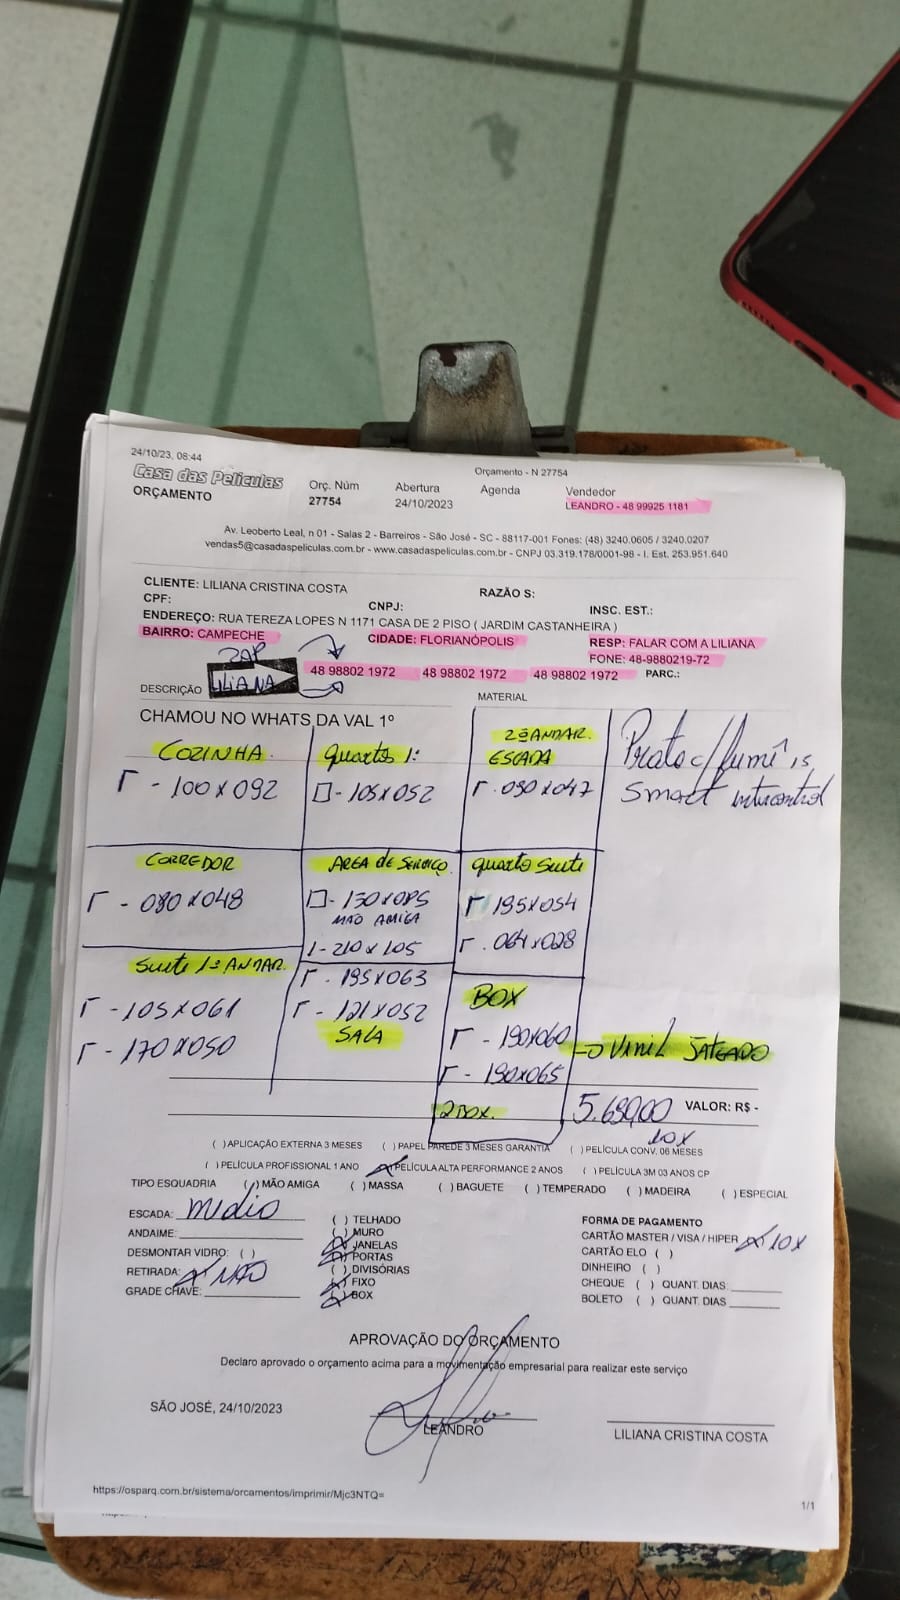 24/10/23, 08:44
Orçamento - N 27754
Casa das Películas
ORÇAMENTO
Orç. Núm
27754
Abertura
24/10/2023
Agenda
Vendedor
LEANDRO - 48 99925 1181
Av. Leoberto Leal, n 01 - Salas 2 - Barreiros - São José - SC - 88117-001 Fones: (48) 3240.0605 / 3240.0207
vendas5@casadaspeliculas.com.br - www.casadaspeliculas.com.br - CNPJ 03.319.178/0001-98 - I. Est. 253.951.640
CLIENTE: LILIANA CRISTINA COSTA
RAZÃO S:
CPF:
CNPJ:
INSC. EST.:
ENDEREÇO: RUA TEREZA LOPES N 1171 CASA DE 2 PISO ( JARDIM CASTANHEIRA )
BAIRRO: CAMPECHE
CIDADE: FLORIANÓPOLIS
RESP: FALAR COM A LILIANA
ZAP
FONE: 48-9880219-72
LILIANA
48 98802 1972 48 98802 1972 48 98802 1972 PARC.:
DESCRIÇÃO
MATERIAL
CHAMOU NO WHATS DA VAL 1º
COZINHA
- 100x092
Quarto 1:
- 105x052
2º ANDAR.
ESCADA
. 090x047
Prata c/ fumê 15
Smart intercontrol
CORREDOR
- 080x048
AREA de SERVIÇO
- 130x085
MÃO AMIGA
1- 210x105
quarto suite
195x054
. 064x028
Suite 1º ANDAR.
- 105x061
- 170x050
- 195x063
- 121x052
SALA
BOX
- 190x060
- 190x065
2 BOX.
VINIL JATEADO
5.690,00 VALOR: R$ -
10X
( ) APLICAÇÃO EXTERNA 3 MESES ( ) PAPEL PAREDE 3 MESES GARANTIA ( ) PELÍCULA CONV. 06 MESES
( ) PELÍCULA PROFISSIONAL 1 ANO (X) PELÍCULA ALTA PERFORMANCE 2 ANOS ( ) PELÍCULA 3M 03 ANOS CP
TIPO ESQUADRIA ( ) MÃO AMIGA ( ) MASSA ( ) BAGUETE ( ) TEMPERADO ( ) MADEIRA ( ) ESPECIAL
ESCADA: Medio
ANDAIME:
DESMONTAR VIDRO: ( )
RETIRADA: X NÃO
GRADE CHAVE:
( ) TELHADO
( ) MURO
(X) JANELAS
(X) PORTAS
( ) DIVISÓRIAS
(X) FIXO
(X) BOX
FORMA DE PAGAMENTO
CARTÃO MASTER / VISA / HIPER X 10X
CARTÃO ELO ( )
DINHEIRO ( )
CHEQUE ( ) QUANT. DIAS:
BOLETO ( ) QUANT. DIAS
APROVAÇÃO DO ORÇAMENTO
Declaro aprovado o orçamento acima para a movimentação empresarial para realizar este serviço
SÃO JOSÉ, 24/10/2023
LEANDRO
LILIANA CRISTINA COSTA
https://osparq.com.br/sistema/orcamentos/imprimir/Mjc3NTQ=
1/1